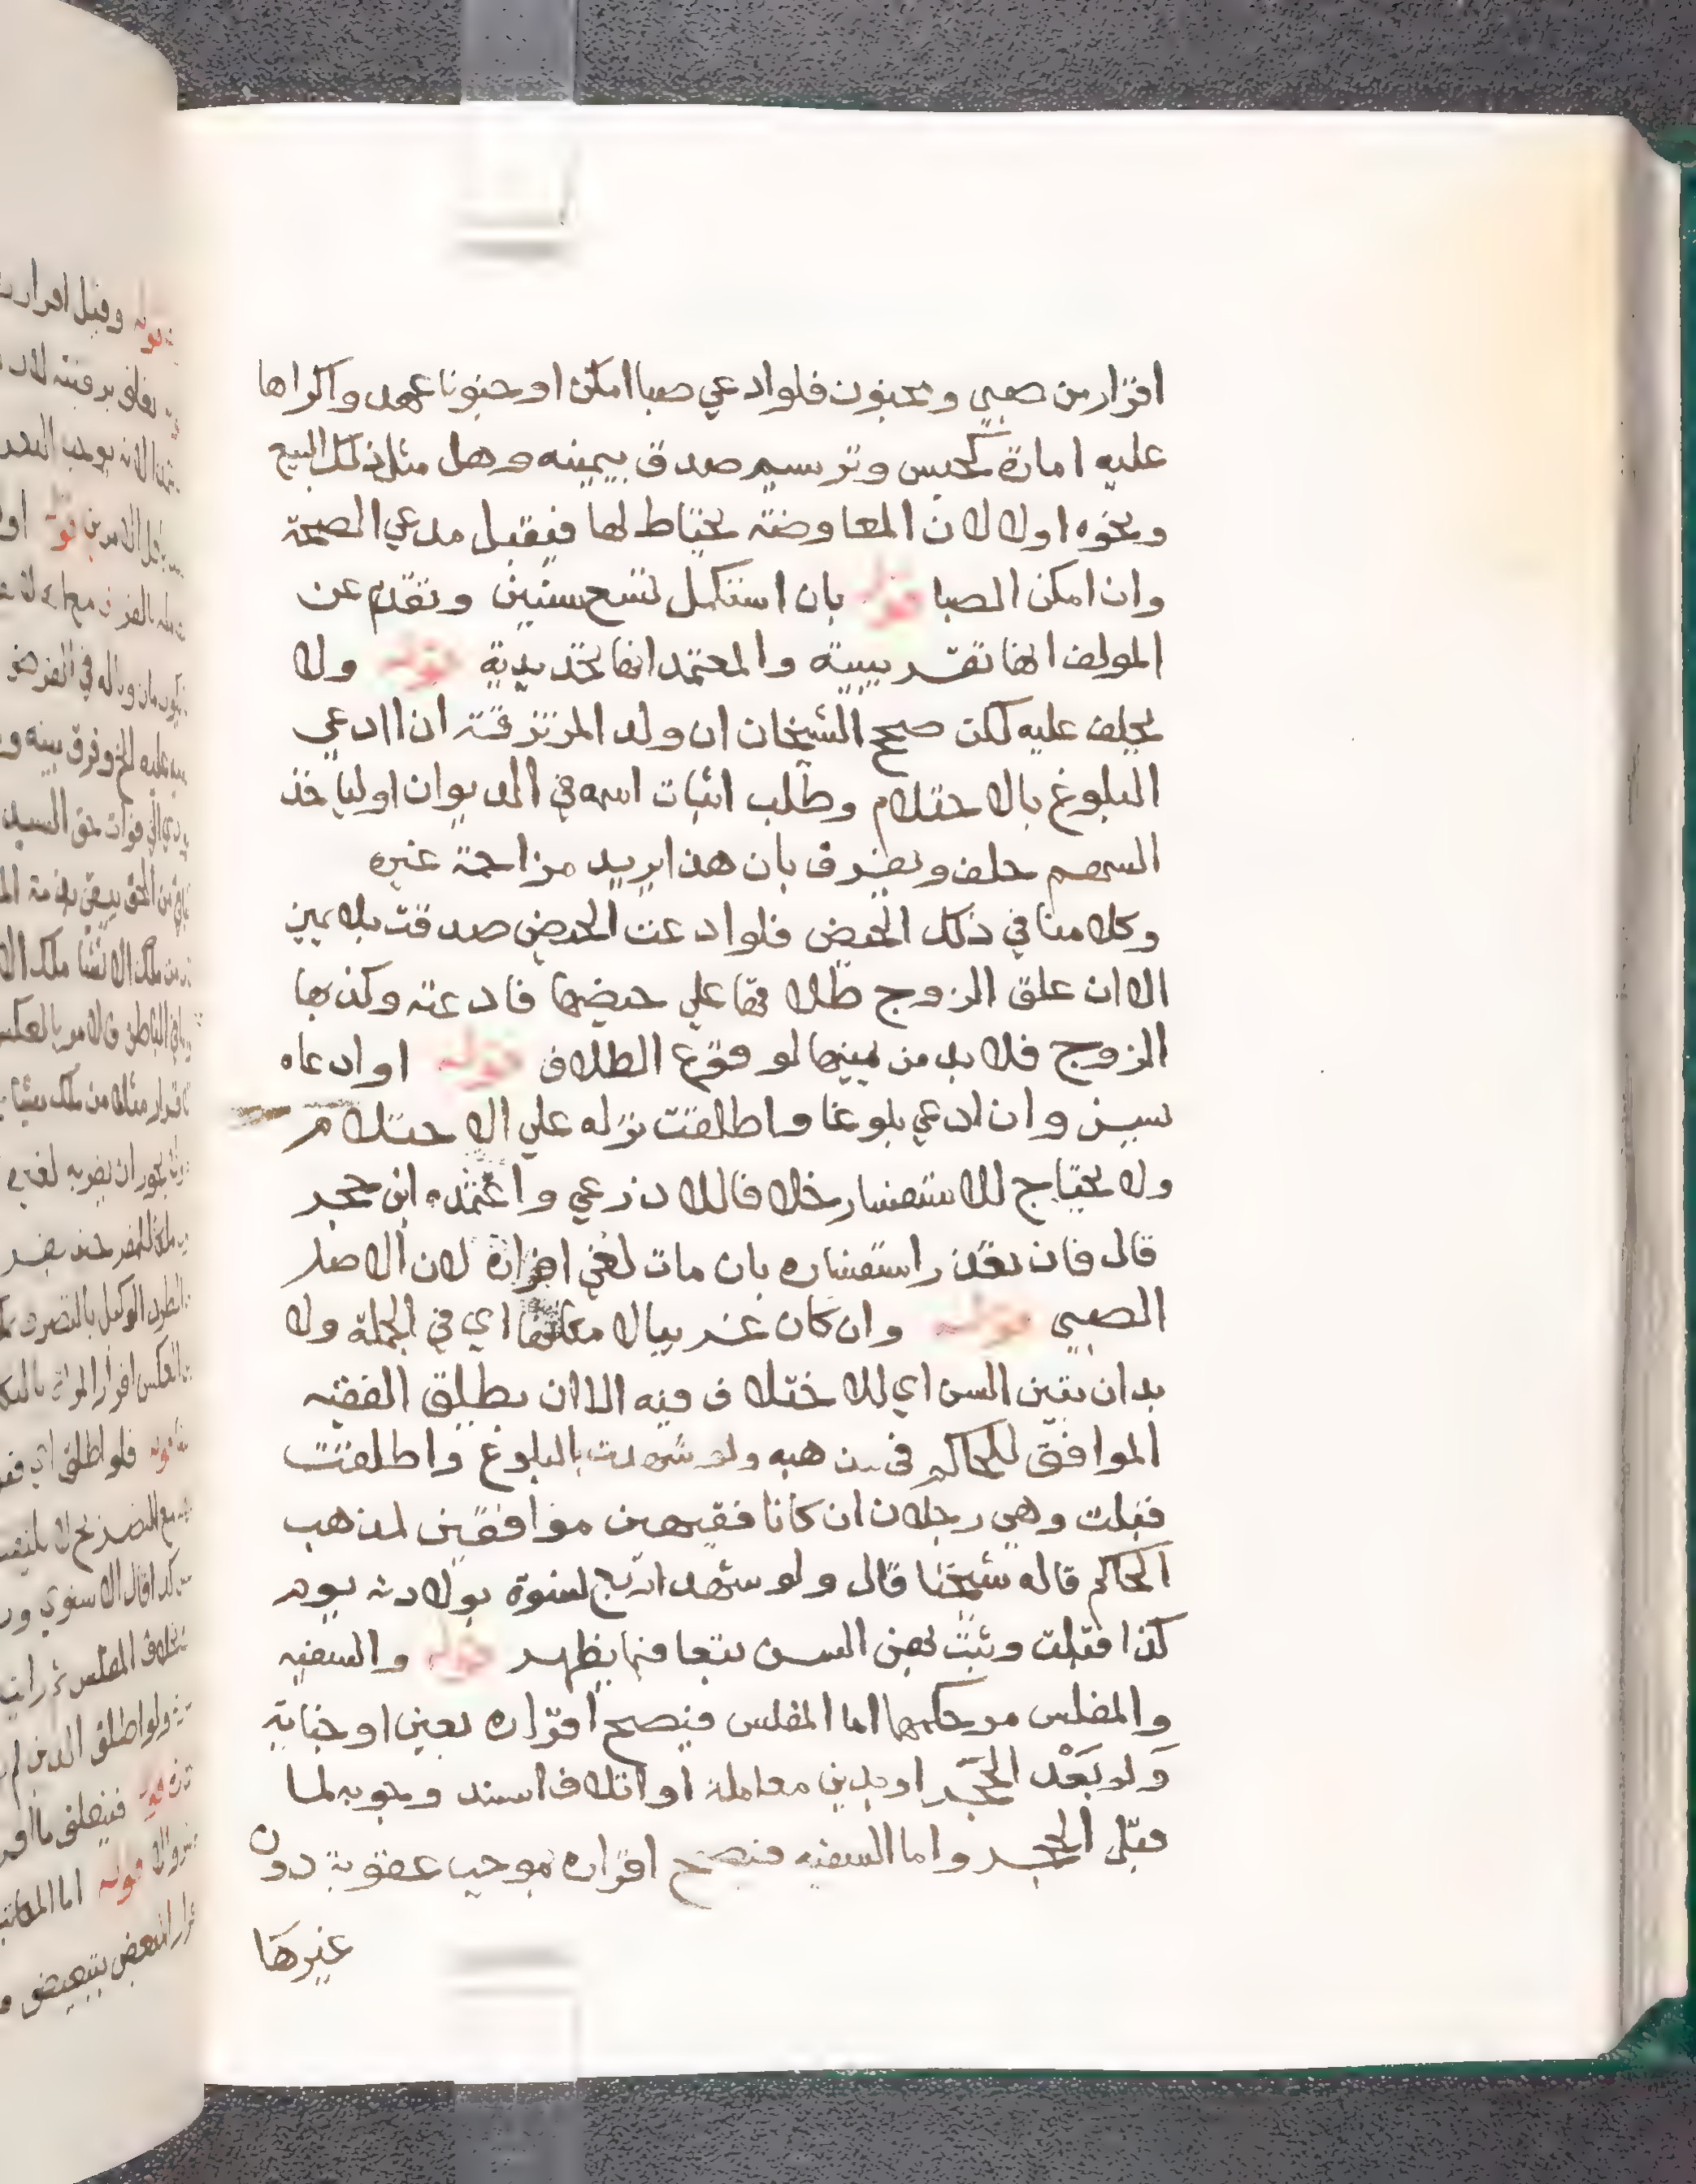 اقرار من صبي ومجنون فلو ادعي صبا امكن او جنونا عهد واكراها
عليه امارة كحبس وترسيم صدق بيمينه وهل مثل ذلك البيع
ونحوه اولا لان المعاوضة يحتاط لها فيقبل مدعي الصحة
وان امكن الصبا قوله بان استكمل تسع سنين وتقدم عن
المولف انها تقريبية والمعتمد انها تحديدية قوله ولا
يحلف عليه لكن صحح الشيخان ان ولد المرتزقة ان ادعي
البلوغ بالاحتلام وطلب اثبات اسمه في الديوان او لياخذ
السهم حلف ويفرق بان هذا يريد مزاحمة غيره
وكلامنا في ذلك الحيض فلو ادعت الحيض صدقت بلا يمين
الا ان علق الزوج طلاقها علي حيضها فادعته وكذبها
الزوج فلا بد من يمينها لوقوع الطلاق قوله او ادعاه
بسن وان ادعي بلوغا واطلقت نزله علي الاحتلام
ولا يحتاج للاستفسار خلافا للاذرعي واعتمده ابن حجر
قال فان تعذر استفساره بان مات لغي اقراره لان الاصل
الصبي قوله وان كان غريبا لا مكانها اي في الجملة ولا
بد ان يتبين السن اي للاختلاف فيه الا ان يطلق الفقيه
الموافق للحاكم في مذهبه ولو شهدت بالبلوغ واطلقت
قبلت وهي رجلان ان كانا فقيهين موافقين لمذهب
الحاكم قاله شيخنا قال ولو شهد اربع نسوة بولادته يوم
كذا قبلت وثبت بهن السن تبعا فيما يظهر قوله والسفيه
والمفلس مر حكمهما اما المفلس فيصح اقراره بعين او جناية
وَلو بَعْد الحجر او بدين معاملة او اتلاف اسند وجوبه لما
قبل الحجر واما السفيه فيصح اقراره بموجب عقوبة دون
غيرها